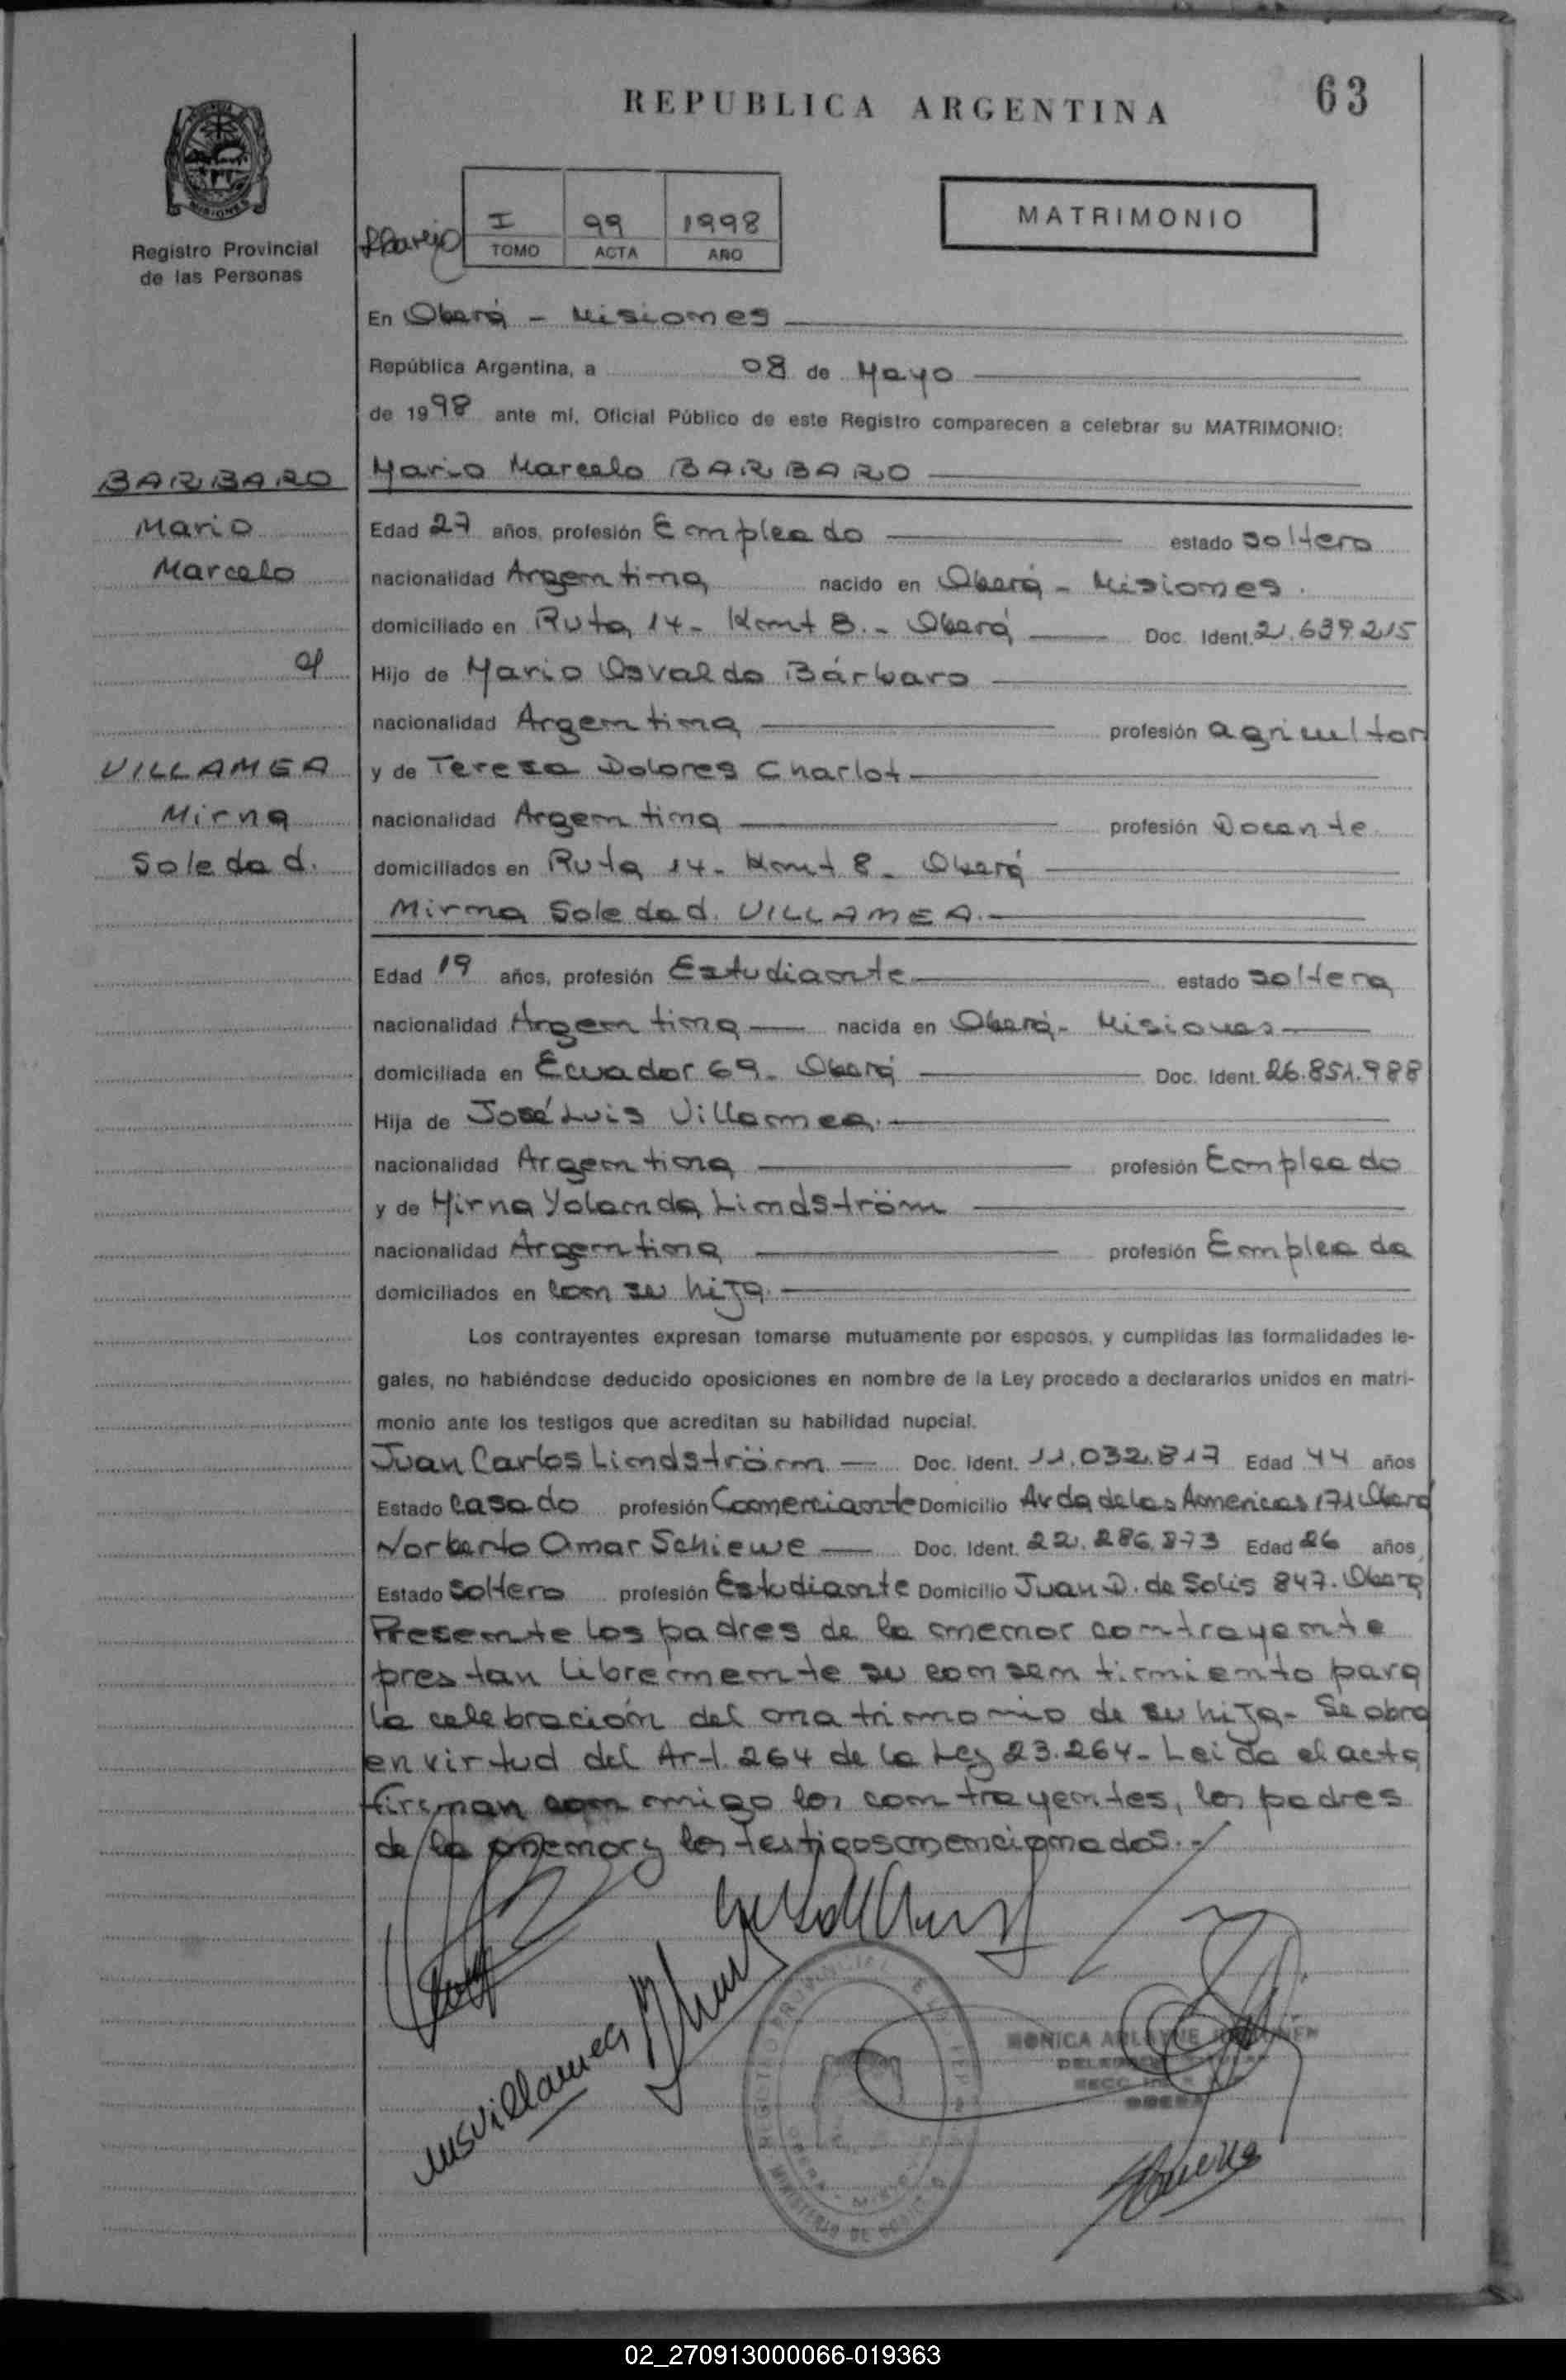 REPUBLICA ARGENTINA
63
MISIONES
Registro Provincial
de las Personas
I 99 1998
TOMO ACTA AÑO
MATRIMONIO
En Oberá - Misiones
República Argentina, a 08 de Mayo
de 1998 ante mí, Oficial Público de este Registro comparecen a celebrar su MATRIMONIO:
BARBARO
Mario
Marcelo
VILLAMEA
Mirna
Soledad.
Mario Marcelo BARBARO
Edad 27 años, profesión Empleado estado soltero
nacionalidad Argentina nacido en Oberá - Misiones.
domiciliado en Ruta 14 - Kmt 8. - Oberá Doc. Ident. 21.639.215
Hijo de Mario Osvaldo Bárbaro
nacionalidad Argentina profesión agricultor
y de Teresa Dolores Charlot
nacionalidad Argentina profesión Docente
domiciliados en Ruta 14 - Kmt 8 - Oberá
Mirna Soledad. VILLAMEA.
Edad 19 años, profesión Estudiante estado soltera
nacionalidad Argentina nacida en Oberá - Misiones
domiciliada en Ecuador 69 - Oberá Doc. Ident. 26.851.988
Hija de José Luis Villamea.
nacionalidad Argentina profesión Empleado
y de Mirna Yolanda Lindström
nacionalidad Argentina profesión Empleada
domiciliados en con su hija.
Los contrayentes expresan tomarse mutuamente por esposos, y cumplidas las formalidades le-
gales, no habiéndose deducido oposiciones en nombre de la Ley procedo a declararlos unidos en matri-
monio ante los testigos que acreditan su habilidad nupcial.
Juan Carlos Lindström Doc. Ident. 11.032.817 Edad 44 años
Estado casado profesión Comerciante Domicilio Avda de las Americas 171 Oberá
Norberto Omar Schiewe Doc. Ident. 22.286.873 Edad 26 años,
Estado soltero profesión Estudiante Domicilio Juan D. de Solis 847. Oberá
Presente los padres de la menor contrayente
prestan libremente su consentimiento para
la celebración del matrimonio de su hija - Se obra
en virtud del Art. 264 de la Ley 23.264 - Leida el acta
firman conmigo los contrayentes, los padres
de la menor y los testigos mencionados. -
Villamea
MONICA
OBERA
REGISTRO PROVINCIAL
MINISTERIO DE
02_270913000066-019363